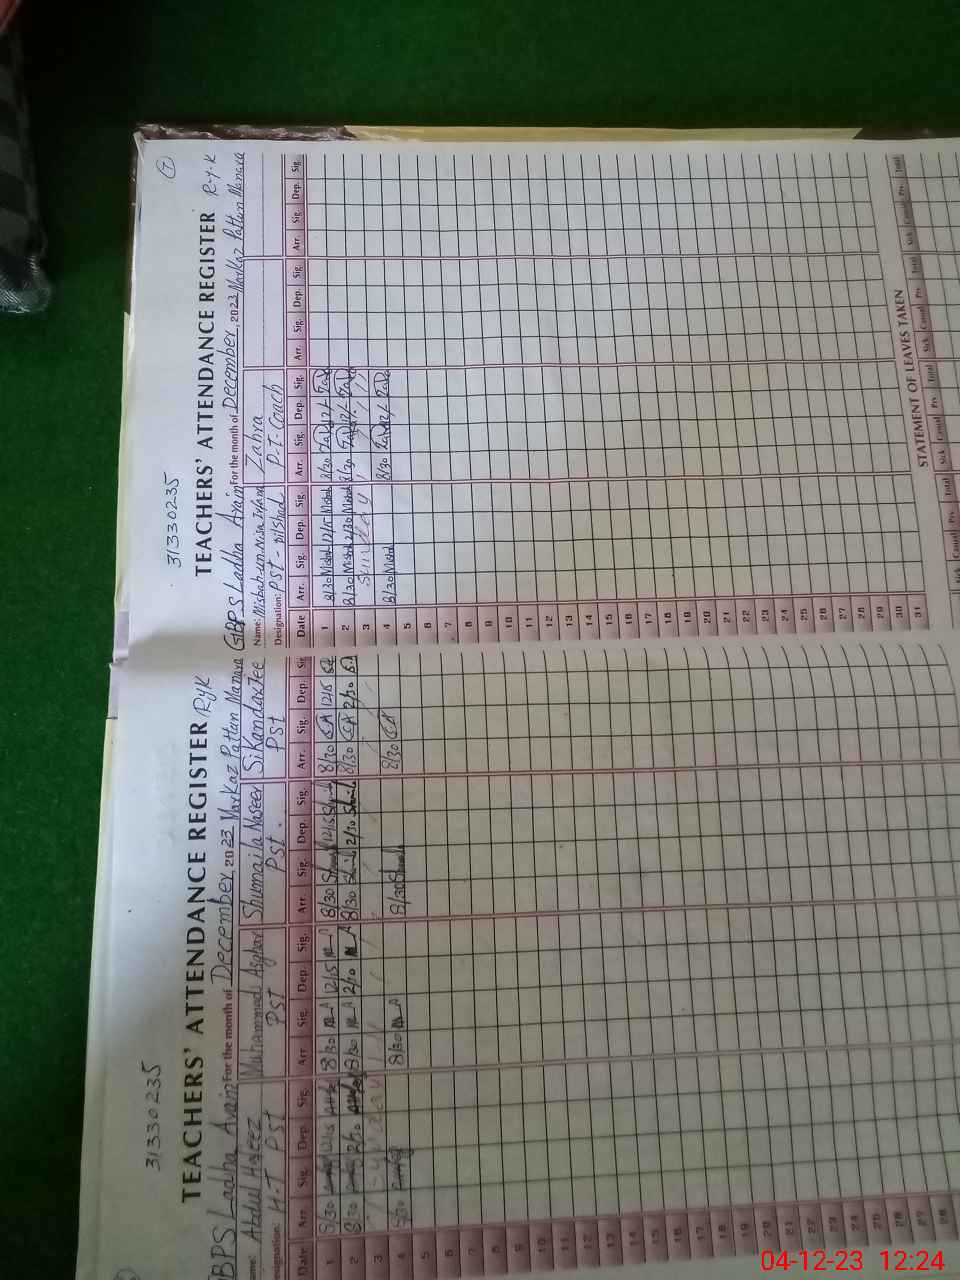 31330235
TEACHERS' ATTENDANCE REGISTER RYK
BPS Ladha Arain For the month of December, 2023 Markaz Pattan Manara
Name: Abdul Hafeez Muhammad Asghar Shumaila Naseer Sikandar
Designation: H.T PST PST PST. PST
Date Arr. Sig. Dep. Sig. Arr. Sig. Dep. Sig. Arr. Sig. Dep. Sig. Arr. Sig. Dep. Sig.
1 8/30 12/15 8/30 M-A 12/15 M-A 8/30 12/15 8/30 12/15
2 8/30 2/30 8/30 M-A 2/30 M-A 8/30 2/30 8/30 2/30
3 Sunday
4 8/30 8/30 M-A 8/30 8/30
5
6
7
8
9
10
11
12
13
14
15
16
17
18
19
20
21
22
23
24
25
26
27
28
31330235
TEACHERS' ATTENDANCE REGISTER R-Y-K
GBPS Ladha Arain For the month of December, 2023 Markaz Pattan Manara
Name: Misbah-un-Nisa Zahra
Designation: PST - P-T-Coach
Date Arr. Sig. Dep. Sig. Arr. Sig. Dep. Sig. Arr. Sig. Dep. Sig. Arr. Sig. Dep. Sig.
1 8/30 Misbah 12/15 Misbah 8/30 12/-
2 8/30 Misbah 2/30 Misbah 8/30 12/-
3 Sunday
4 8/30 Misbah 8/30 12/-
5
6
7
8
9
10
11
12
13
14
15
16
17
18
19
20
21
22
23
24
25
26
27
28
29
30
31
STATEMENT OF LEAVES TAKEN
Sick Casual Prv Total Sick Casual Prv Total Sick Casual Prv Total Sick Casual Prv Total
04-12-23 12:24